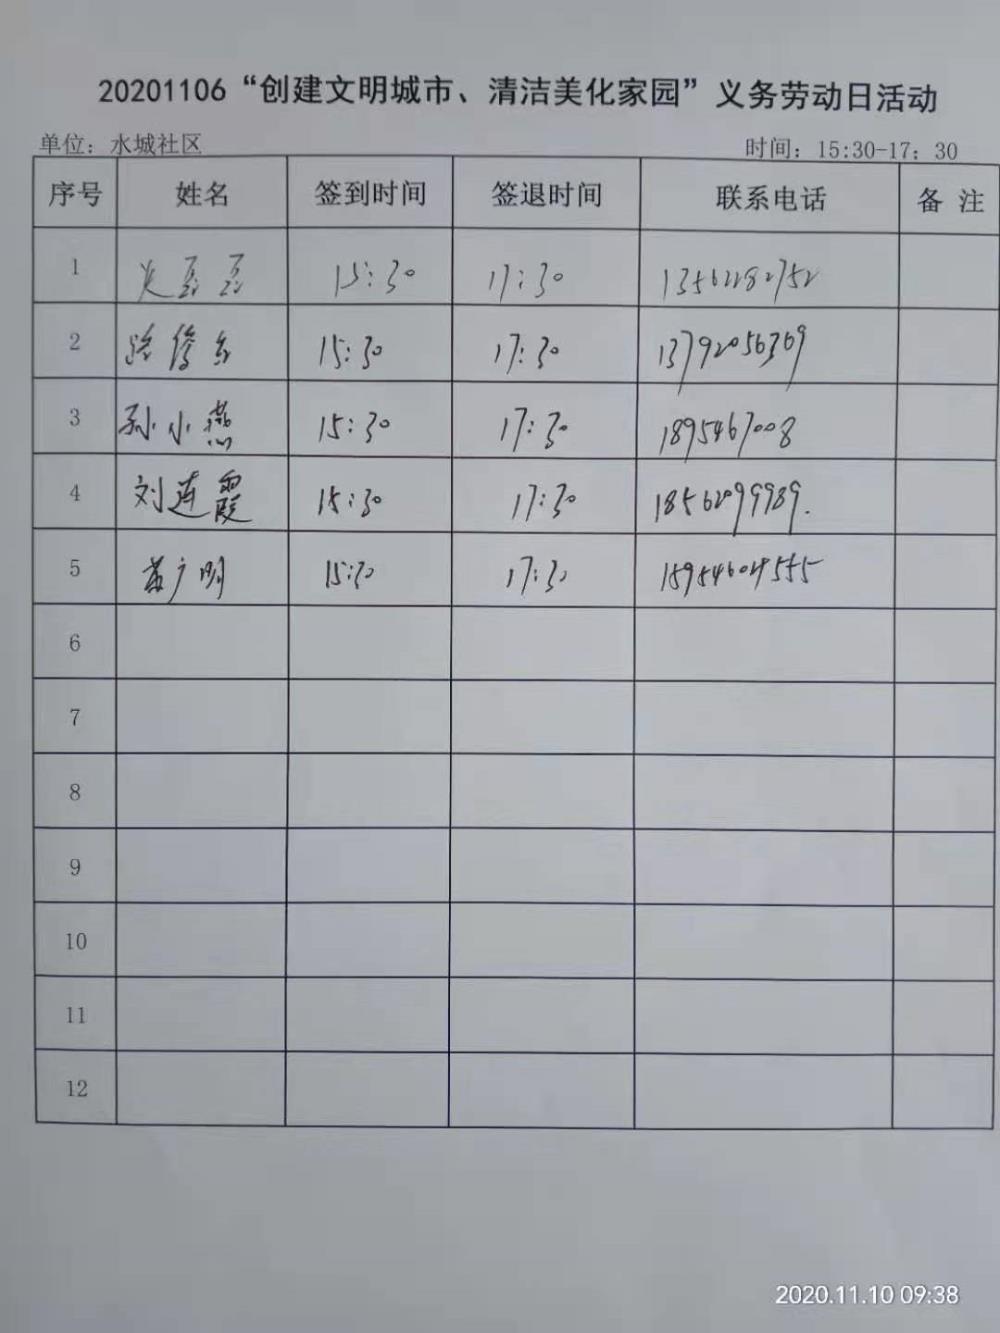 20201106“创建文明城市、清洁美化家园”义务劳动日活动
单位：水城社区 时间：15:30-17：30
序号 姓名 签到时间 签退时间 联系电话 备 注
1 15:30 17:30 13562282752
2 15:30 17:30 13792056369
3 孙小燕 15:30 17:30 1895467008
4 刘连霞 15:30 17:30 18562099989.
5 广明 15:30 17:30
6
7
8
9
10
11
12
2020.11.10 09:38